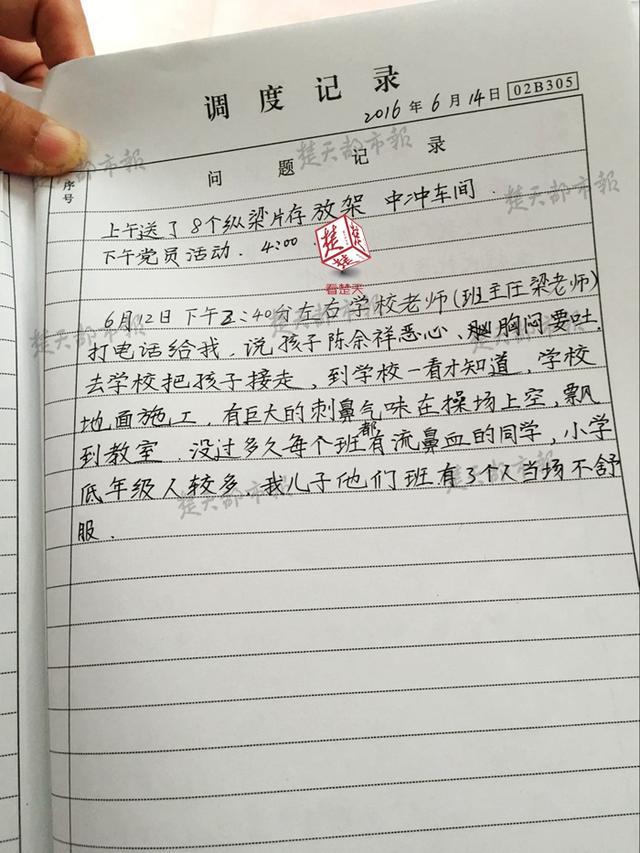 调度记录
2016年6月14日 02B305
序号 问题记录
上午送了8个纵梁片存放架 中冲车间.
下午党员活动. 4:00.
看楚天
6月12日下午2:40分左右学校老师(班主任梁老师)
打电话给我，说孩子陈余祥恶心、胸闷要吐.
去学校把孩子接走，到学校一看才知道，学校
地面施工，有巨大的刺鼻气味在操场上空，飘
到教室．没过多久每个班都有流鼻血的同学，小学
低年级人较多，我儿子他们班有3个人当场不舒
服．
楚天都市报
楚天都市报
楚天都市报
楚天都市报
楚天都市报
楚天都市报
楚天都市报
楚天都市报